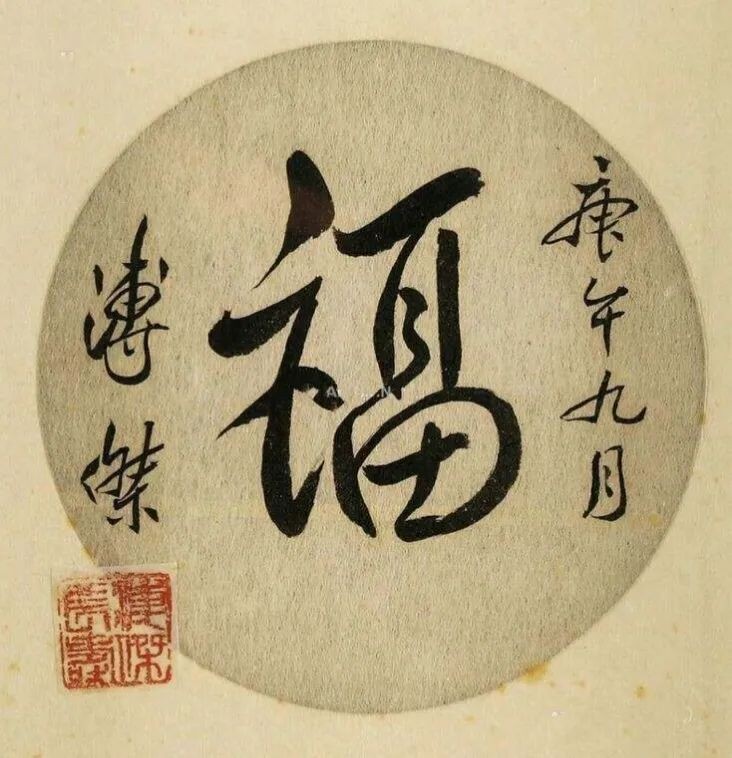 庚午九月
福
溥傑
溥傑
長壽